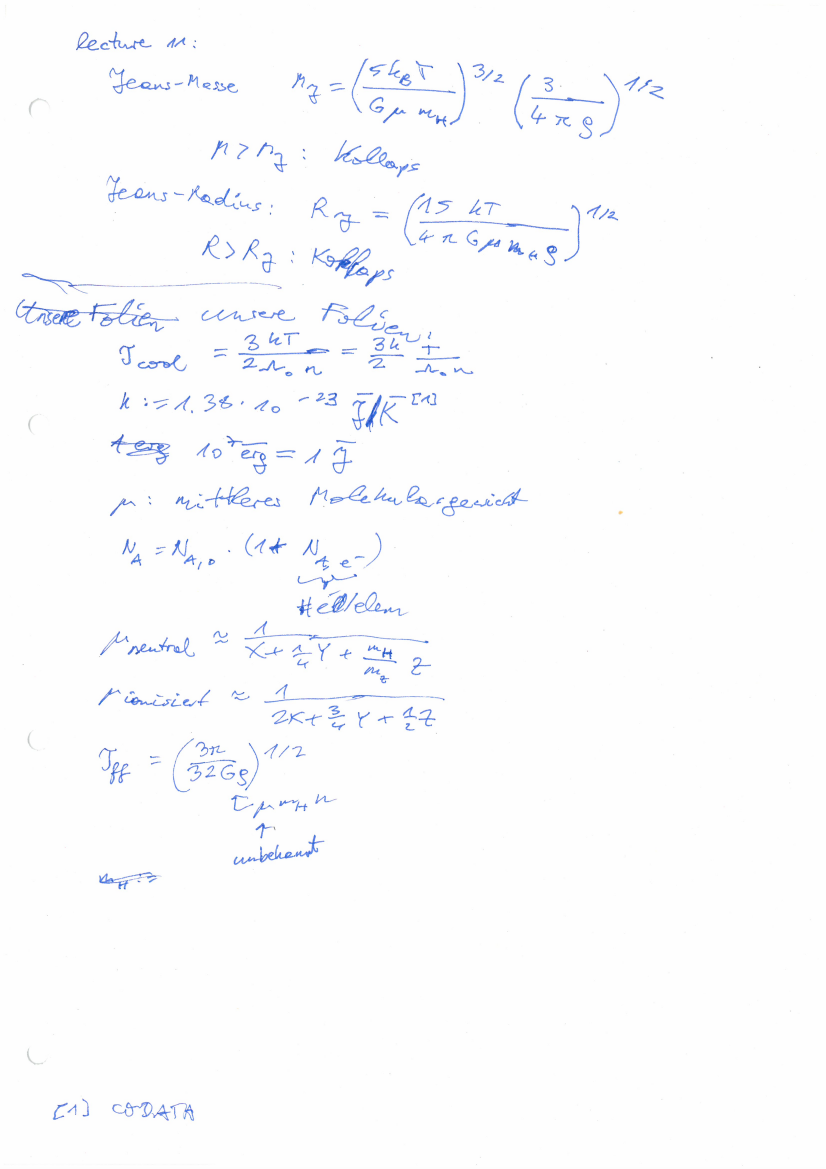 Lecture 11:
Jeans-Masse M_J = (5 k_B T / G μ m_H)^{3/2} (3 / 4 π ρ)^{1/2}
M > M_J : Kollaps
Jeans-Radius: R_J = (15 kT / 4 π G μ m_H ρ)^{1/2}
R > R_J : Kollaps
Unsere Folien unsere Folien:
τ_cool = 3 kT / 2 Λ_0 n = 3k / 2 T / Λ_0 n
k := 1,38 · 10^{-23} J/K [1]
1 erg 10^7 erg = 1 J
μ : mittleres Molekulargewicht
N_A = N_{A,0} · (1 + N_{A, e^-})
μ_neutral ≈ 1 / X + 1/4 Y + m_H/m_Z Z
μ_ionisiert ≈ 1 / 2X + 3/4 Y + 1/2 Z
τ_ff = (3π / 32 G ρ)^{1/2}
μ m_H n
↑
unbekannt
m_H :=
[1] CODATA